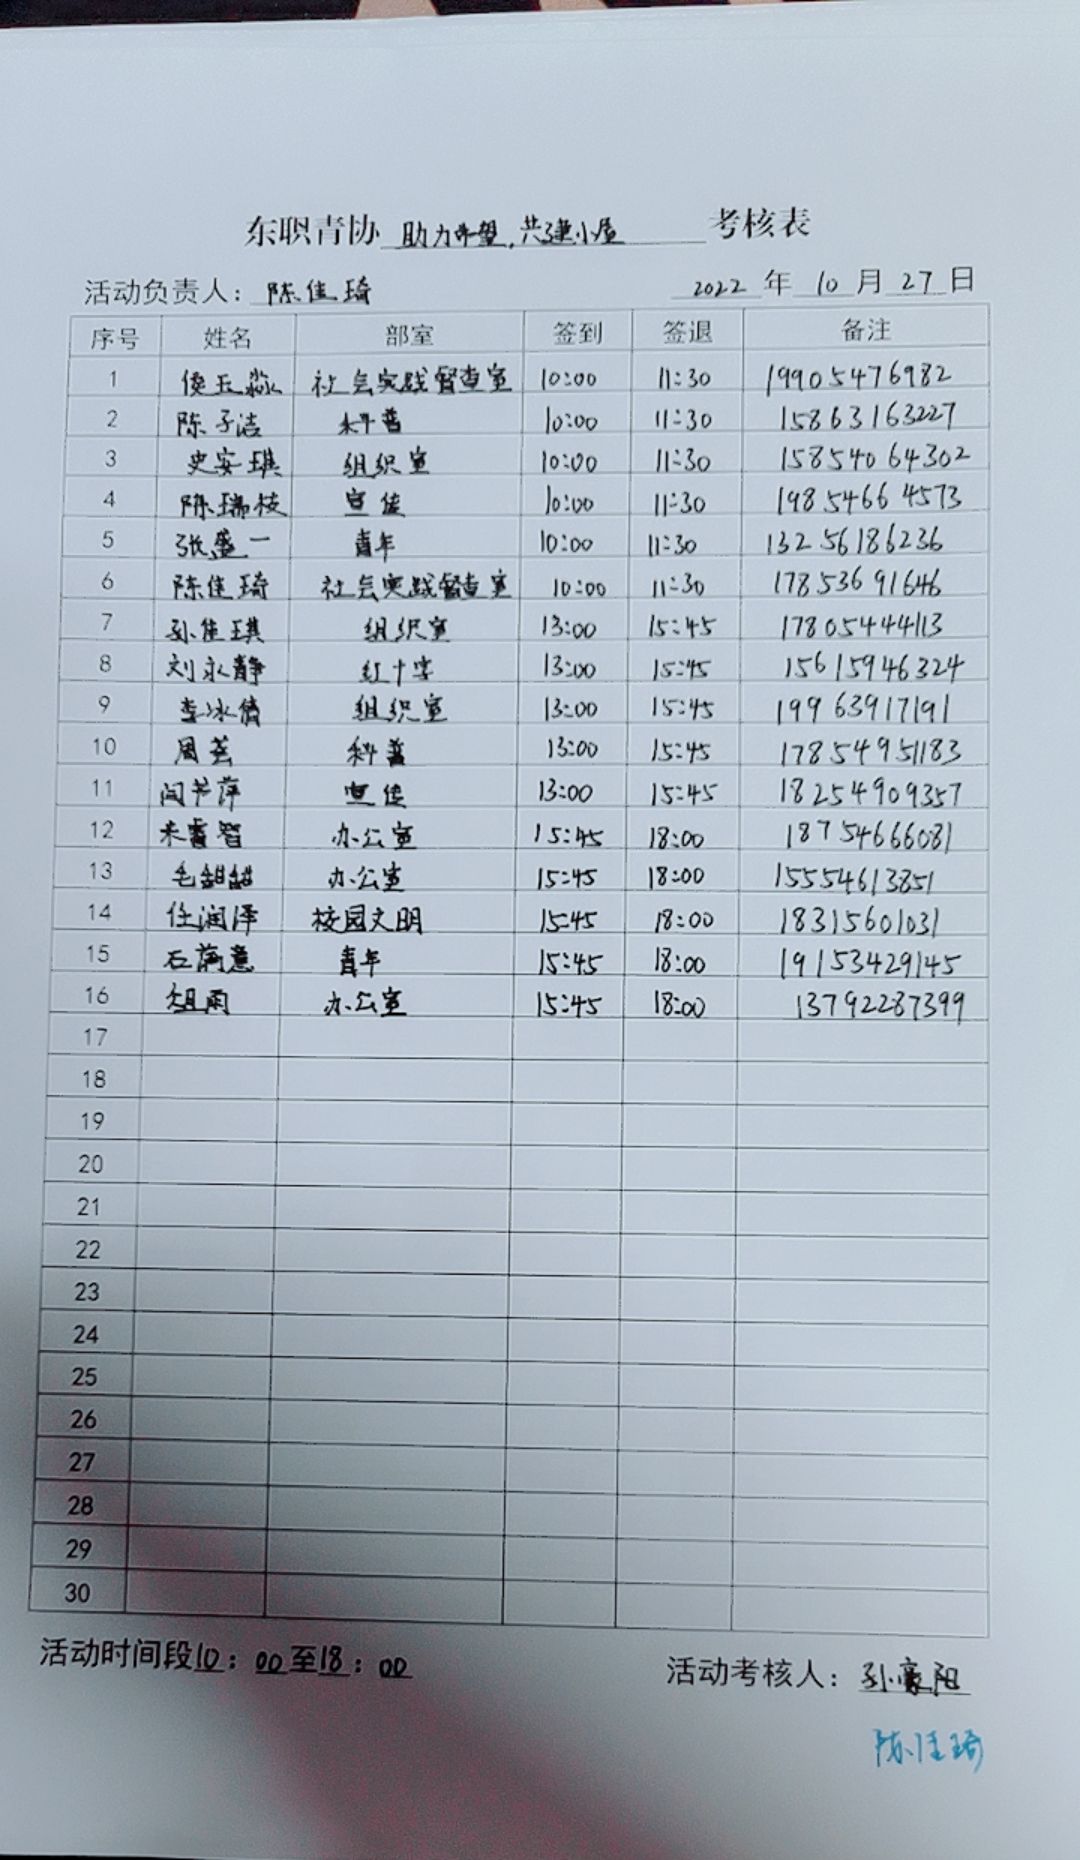 东职青协 助力希望,共建小屋 考核表
活动负责人: 陈佳琦 2022 年 10 月 27 日
序号 姓名 部室 签到 签退 备注
1 侯玉淼 社会实践督查室 10:00 11:30 19905476982
2 陈子洁 科普 10:00 11:30 15863163227
3 史安琪 组织室 10:00 11:30 15854064302
4 陈瑞枝 宣传 10:00 11:30 19854664573
5 张盛一 青年 10:00 11:30 13256186236
6 陈佳琦 社会实践督查室 10:00 11:30 17853691646
7 孙佳琪 组织室 13:00 15:45 17805444113
8 刘永静 红十字 13:00 15:45 15615946324
9 李冰倩 组织室 13:00 15:45 19963917191
10 周芸 科普 13:00 15:45 17854951183
11 闫书萍 宣传 13:00 15:45 18254909357
12 来睿智 办公室 15:45 18:00 18754666081
13 毛甜甜 办公室 15:45 18:00 15554613851
14 任润泽 校园文明 15:45 18:00 18315601031
15 石满意 青年 15:45 18:00 19153429145
16 雨 办公室 15:45 18:00 13792287399
17
18
19
20
21
22
23
24
25
26
27
28
29
30
活动时间段10:00至18:00 活动考核人: 孙豪阳
陈佳琦